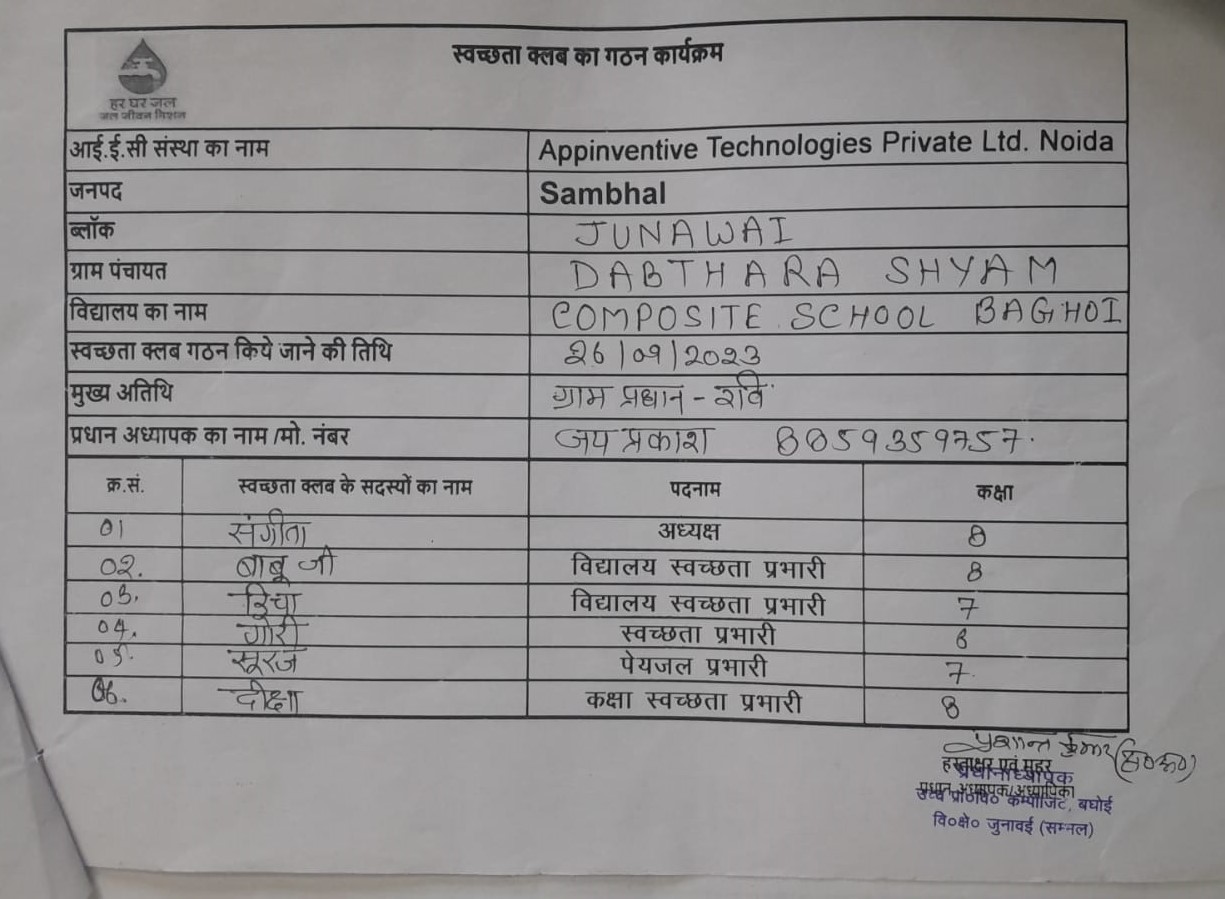 स्वच्छता क्लब का गठन कार्यक्रम
हर घर जल
जल जीवन मिशन
आई.ई.सी संस्था का नाम Appinventive Technologies Private Ltd. Noida
जनपद Sambhal
ब्लॉक JUNAWAI
ग्राम पंचायत DABTHARA SHYAM
विद्यालय का नाम COMPOSITE SCHOOL BAGHOI
स्वच्छता क्लब गठन किये जाने की तिथि 26/09/2023
मुख्य अतिथि ग्राम प्रधान - रवि
प्रधान अध्यापक का नाम /मो. नंबर जय प्रकाश 8859359757.
क्र.सं. स्वच्छता क्लब के सदस्यों का नाम पदनाम कक्षा
01 संगीता अध्यक्ष 8
02. बाबू जी विद्यालय स्वच्छता प्रभारी 8
03. रिचा विद्यालय स्वच्छता प्रभारी 7
04. गोरी स्वच्छता प्रभारी
05. सूरज पेयजल प्रभारी 7
06. दीक्षा कक्षा स्वच्छता प्रभारी 8
प्रशान्त कुमार
हस्ताक्षर एवं मुहर
प्रधानाध्यापक
प्रधान अध्यापक/अध्यापिका
उच्च प्रा०वि० कम्पोजिट, बघोई
वि०क्षे० जुनावई (सम्भल)